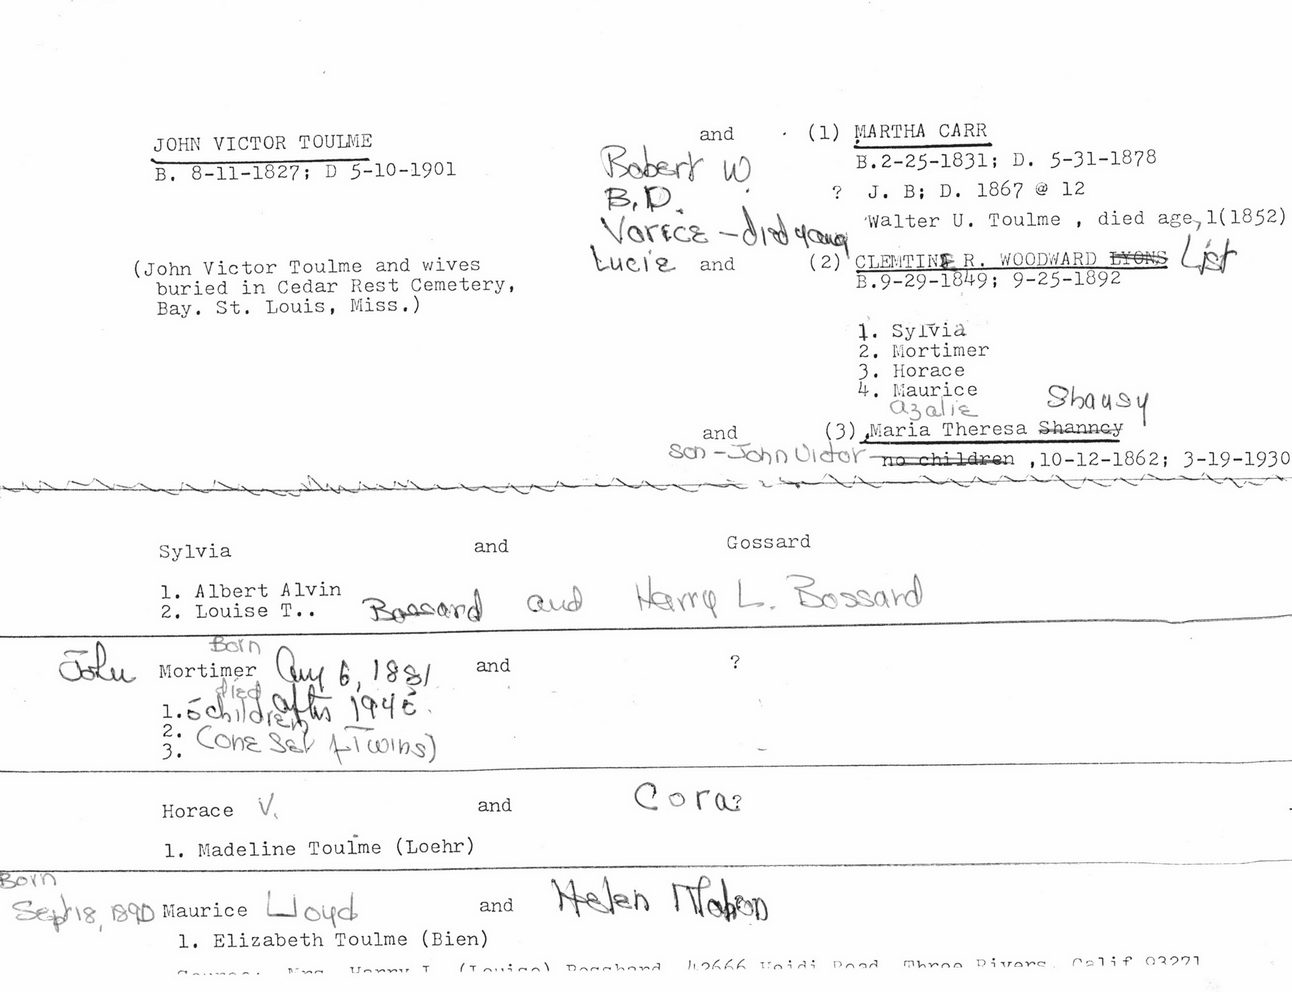 JOHN VICTOR TOULME and (1) MARTHA CARR
B. 8-11-1827; D 5-10-1901 B.2-25-1831; D. 5-31-1878
Robert W.
B.D. ? J. B; D. 1867 @ 12
Walter U. Toulme , died age,1(1852)
Vorice - died young
Lucie and (2) CLEMTINE R. WOODWARD LYONS List
B.9-29-1849; 9-25-1892
(John Victor Toulme and wives
buried in Cedar Rest Cemetery,
Bay. St. Louis, Miss.)
1. Sylvia
2. Mortimer
3. Horace
4. Maurice
azalie Shausy
and (3) Maria Theresa Shanncy
son - John Victor - no children ,10-12-1862; 3-19-1930
Sylvia and Gossard
1. Albert Alvin
2. Louise T.. Bossard and Harry L. Bossard
Born
John Mortimer Aug 6, 1881 and ?
died after 1945.
1. 5 children
2. (one set of Twins)
3.
Horace V. and Cora?
1. Madeline Toulme (Loehr)
Born
Sept 18, 1890 Maurice Lloyd and Helen
1. Elizabeth Toulme (Bien)
Source: Mrs. Harry L. (Louise) Bosshard 42666 Heidi Road, Three Rivers, Calif 93271